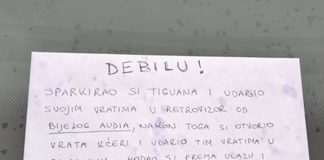 DEBILU!
SPARKIRAO SI TIGUANA I UDARIO
SVOJIM VRATIMA U RETROVIZOR OD
BIJELOG AUDIA, NAKON TOGA SI OTVORIO
VRATA KĆERI I UDARIO TIM VRATIMA U
HODAO SI PREMA ULAZU